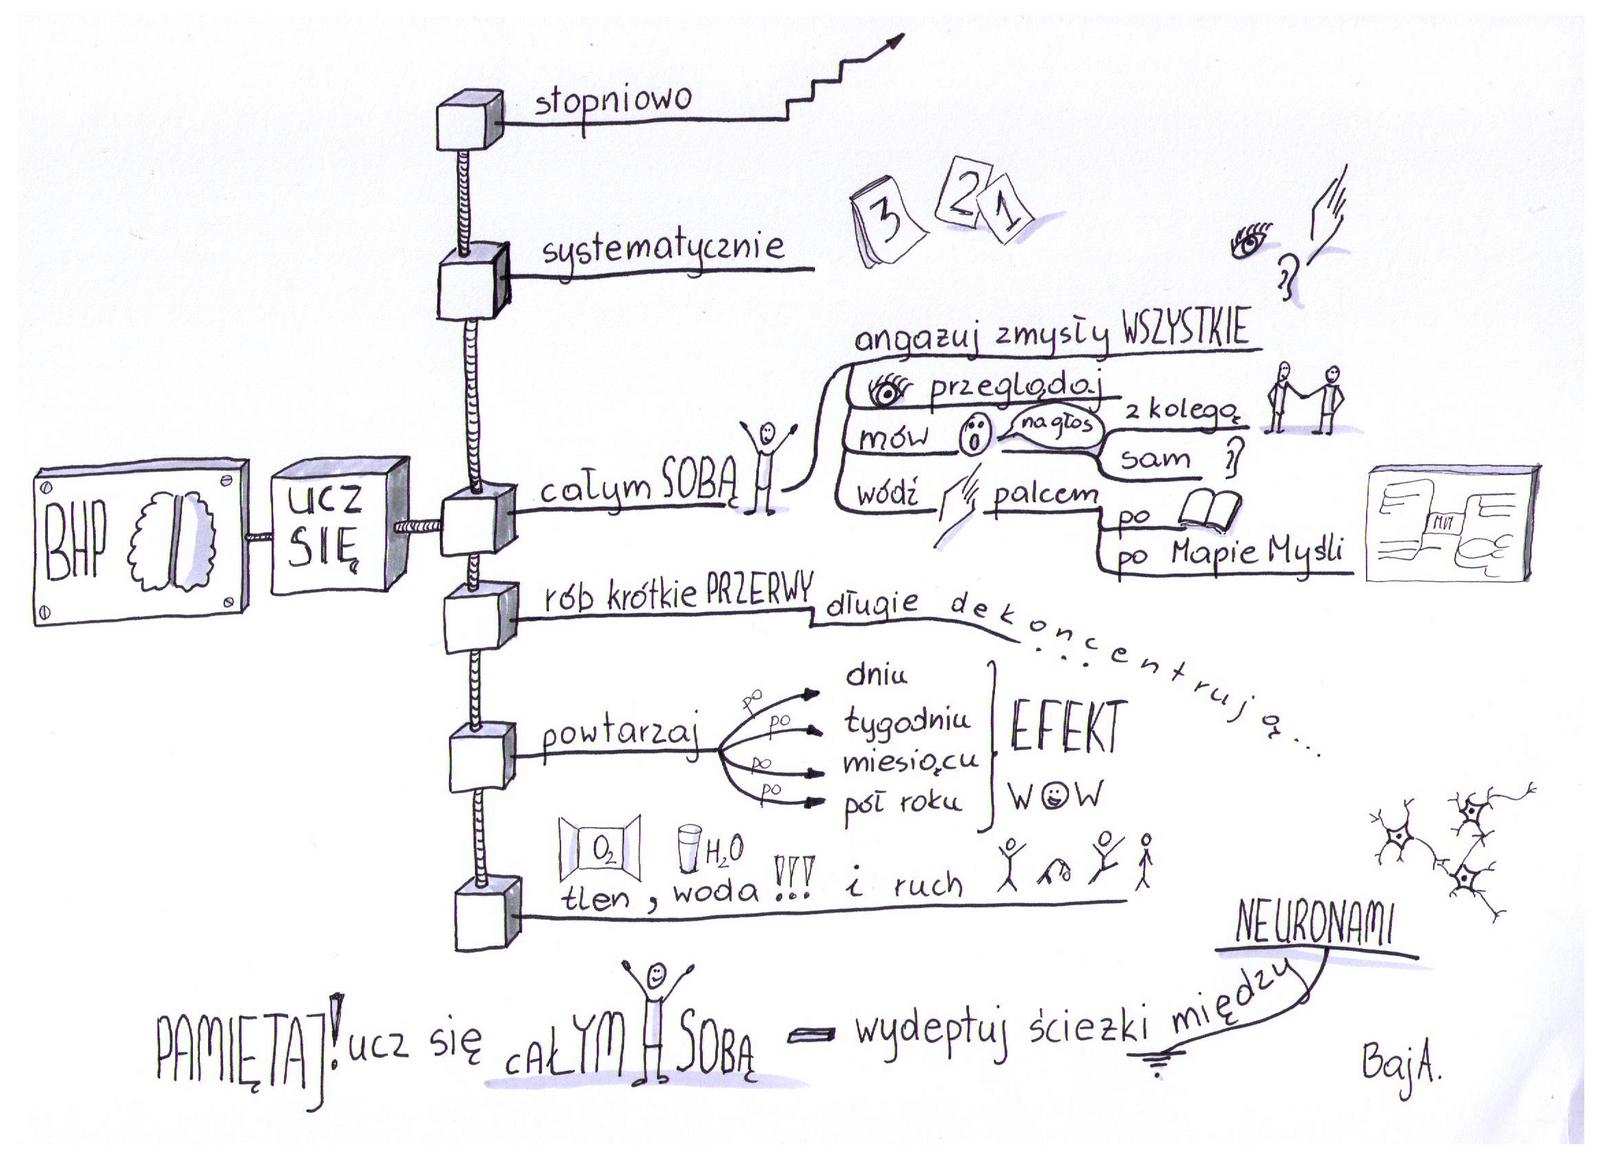 stopniowo
3 2 1
systematycznie
angażuj zmysły WSZYSTKIE
przeglądaj
mów
na głos
z kolegą
sam
całym SOBĄ
wódź
palcem
po
po Mapie Myśli
MM
BHP
UCZ
SIĘ
rób krótkie PRZERWY
długie dekoncentrują...
powtarzaj
po dniu
po tygodniu
po miesiącu
po pół roku
EFEKT
WOW
O₂
H₂O
tlen, woda !!! i ruch
NEURONAMI
PAMIĘTAJ! ucz się CAŁYM SOBĄ – wydeptuj ścieżki między
BajA.